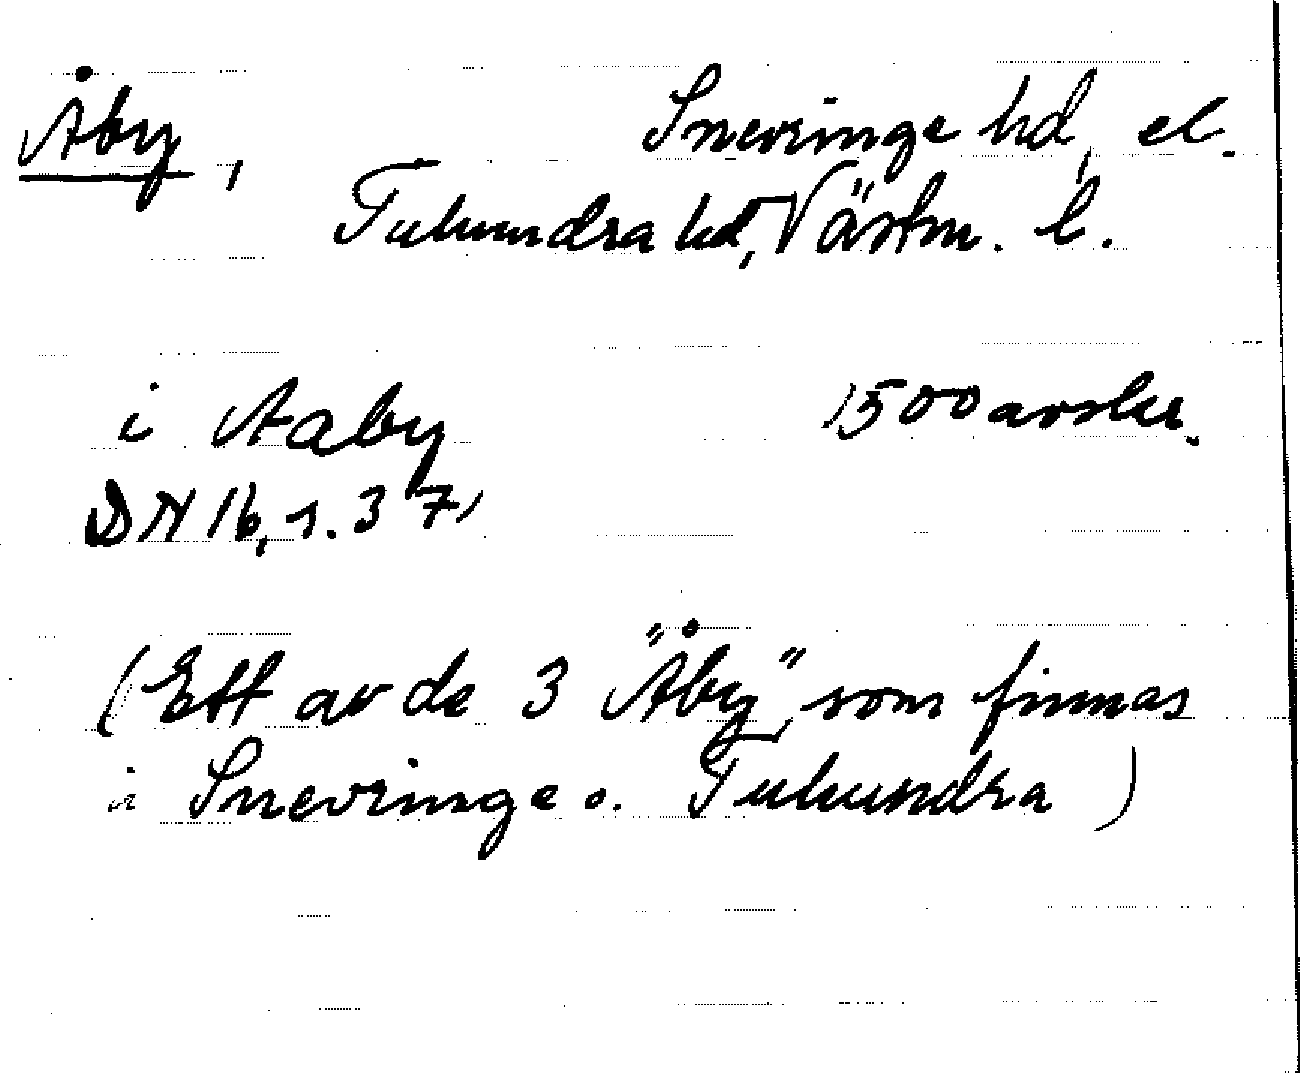 Åby, Snevringe hd, el.
Tuhundra hd, Västm. l.
i Aaby 1500 avskr.
DN 16, s. 37,
(Ett av de 3 "Åby", som finnas
i Snevringe o. Tuhundra)